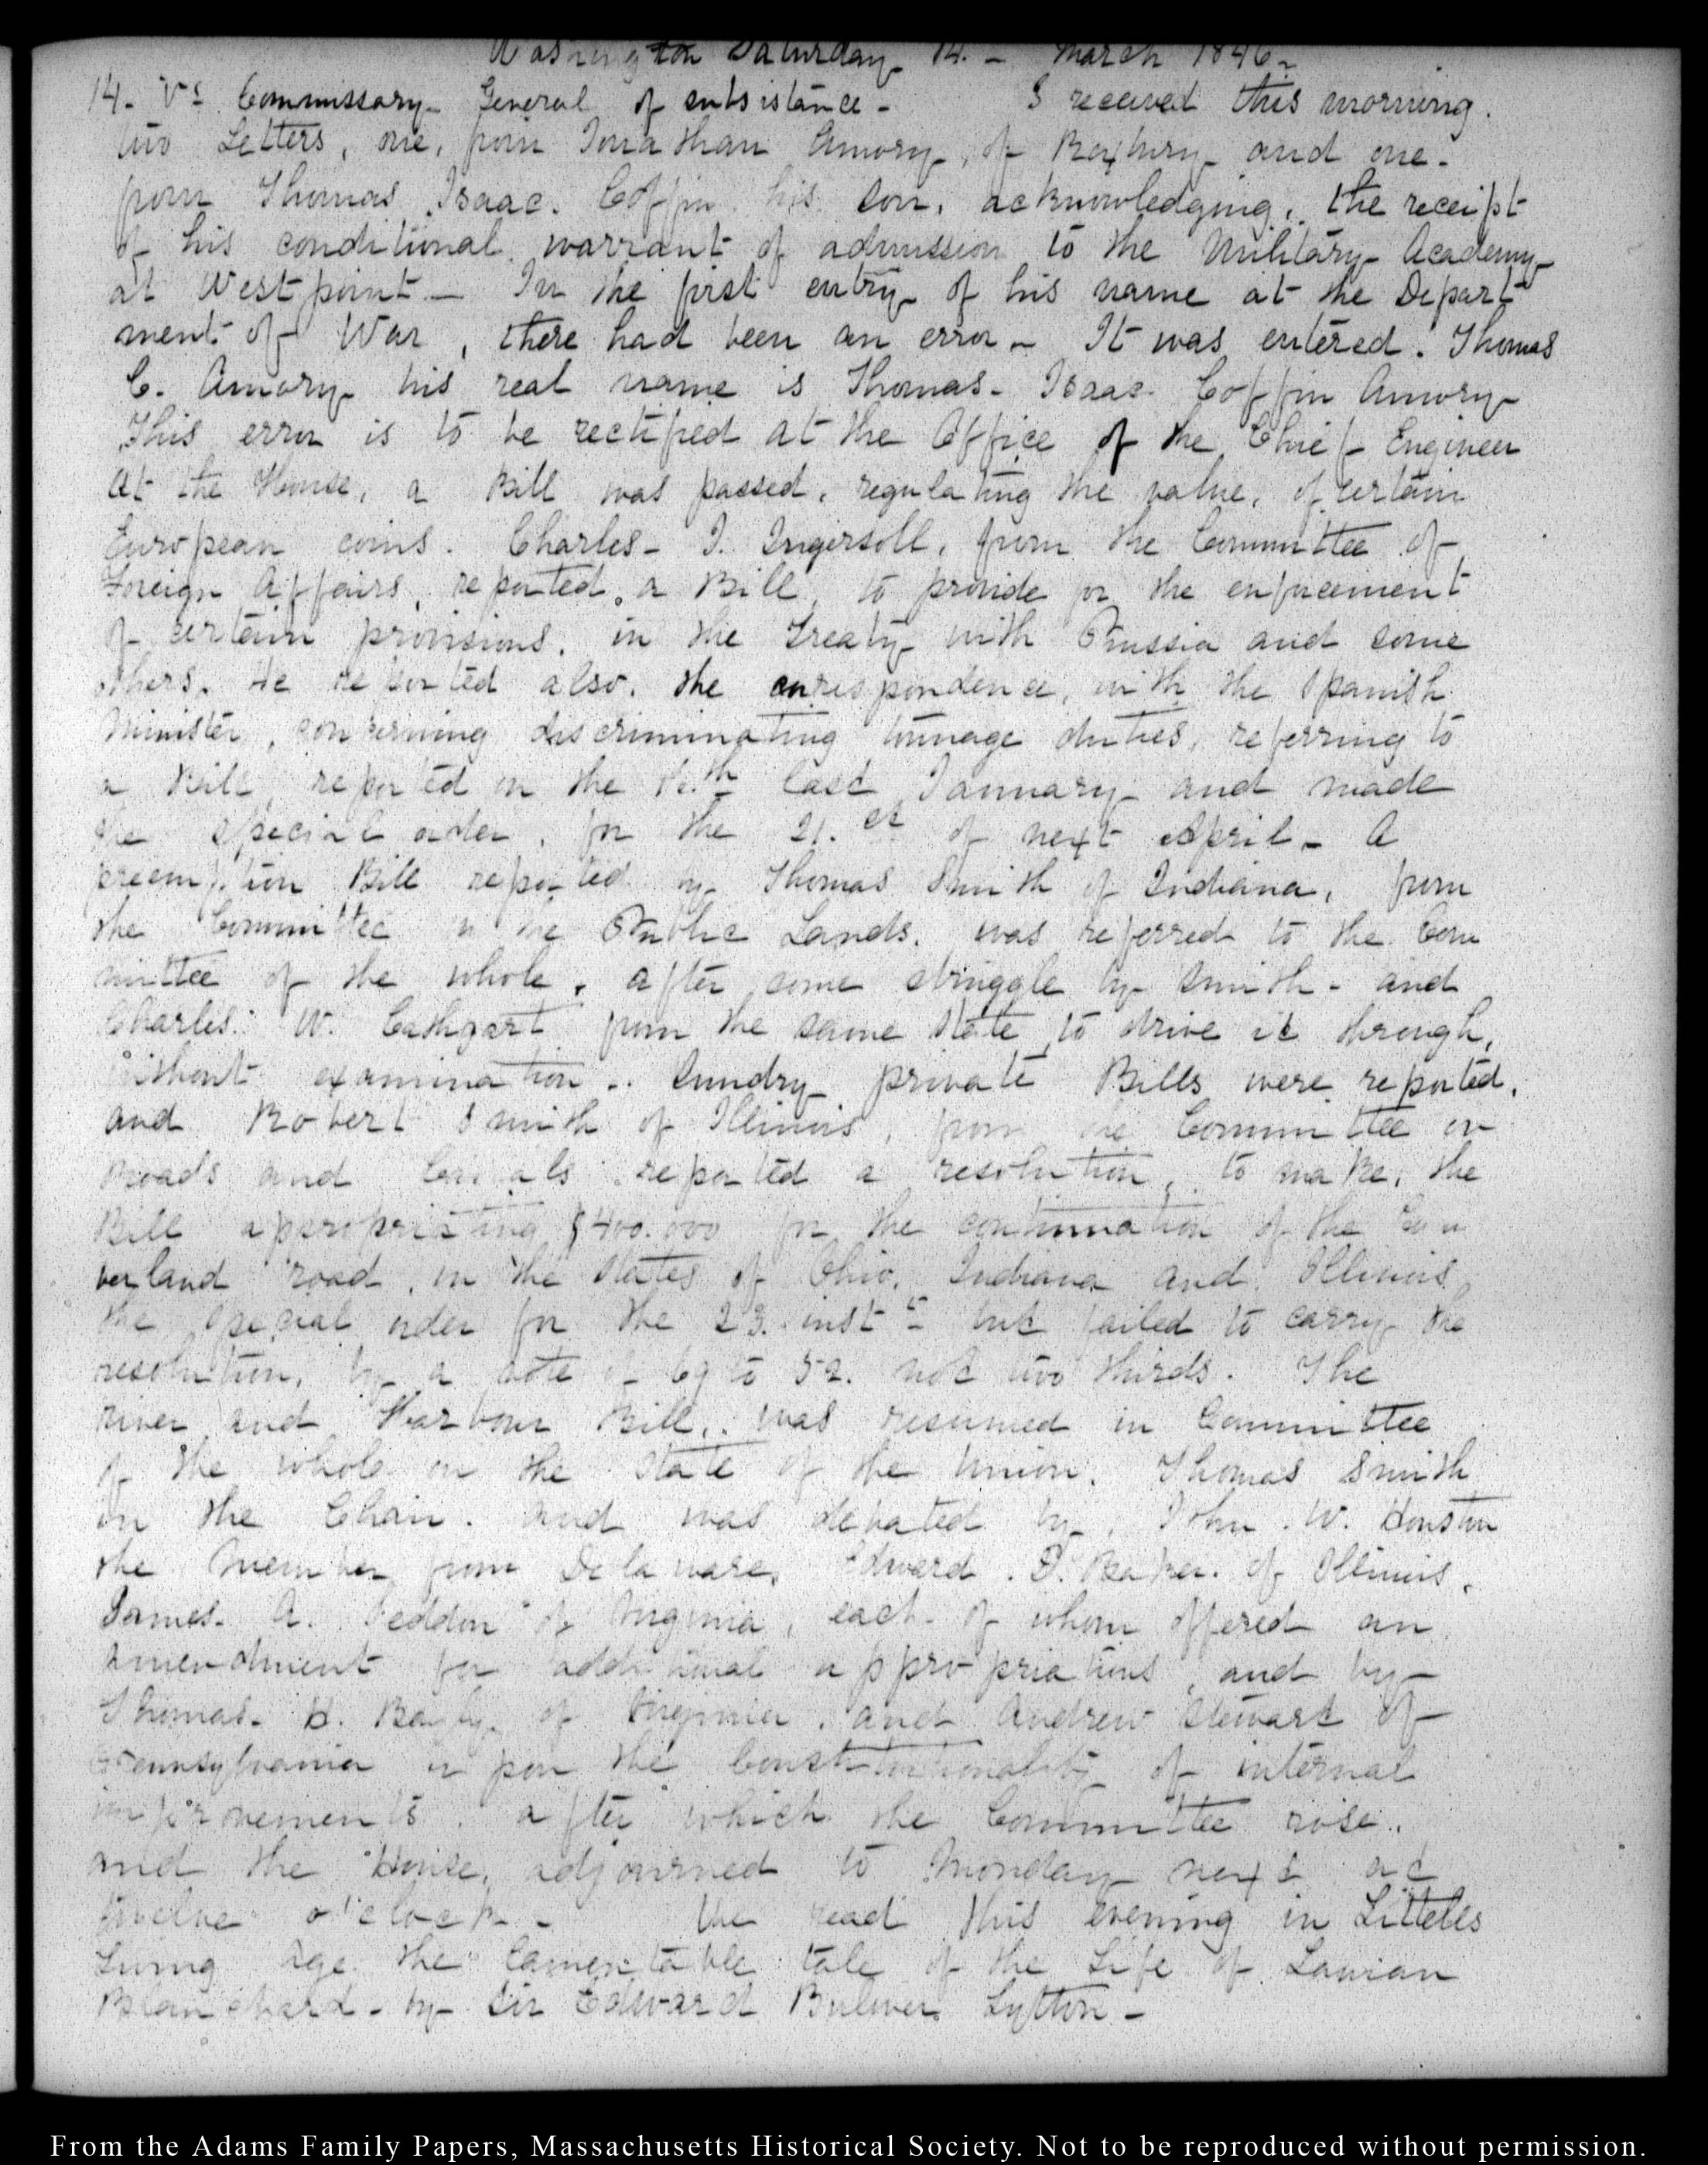 Washington Saturday 14. - March 1846.
14. V.s Commissary General of subsistance - I received this morning.
two Letters, one, from Jonathan Amory, of Roxbury and one.
from Thomas Isaac. Coffin his son, acknowledging, the receipt
of his conditional warrant of admission to the Military Academy
at West point - In the first entry of his name at the Depart
ment of War, there had been an error - It was entered. Thomas
C. Amory his real name is Thomas - Isaac Coffin Amory
This error is to be rectified at the Office of the Chief Engineer
At the House, a Bill was passed, regulating the value, of certain
European coins. Charles - J. Ingersoll, from the Committee of
Foreign Affairs, reported, a Bill, to provide for the enforcement
of certain provisions, in the Treaty with Prussia and some
others. He reported also, the correspondence, with the Spanish
Minister, concerning discriminating tonnage duties, referring to
a Bill, reported on the last January and made
the special order, for the 21.st of next April - A
preemption Bill reported by Thomas Smith of Indiana, from
the Committee on the Public Lands, was referred to the Com
mittee of the whole, after some struggle by Smith - and
Charles. W. Cathcart from the same State, to drive it through,
without examination .. Sundry private Bills were reported,
and Robert Smith of Illinois, from the Committee on
Roads and Canals reported a resolution, to make, the
Bill appropriating $400.000 for the continuation of the Cum
berland road, in the States of Ohio, Indiana and Illinois,
the special order for the 23. inst.t but failed to carry the
resolution, by a vote of 69 to 52. not two thirds. The
river and Harbour Bill, was resumed in Committee
of the whole on the State of the Union, Thomas Smith
in the Chair. and was debated by, John. W. Houston
the Member from Delaware, Edward. D. Baker. of Illinois,
James - A. Seddon of Virginia, each - of whom offered an
amendment for additional appropriations, and by
Thomas - H. Bayly. of Virginia, and Andrew Stewart of
Pennsylvania upon the Constitutionality of internal
improvements. after which the Committee rose..
and the House, adjourned to Monday next at
twelve o'clock - We read this evening in Littells
Living Age the lamentable tale of the Life of Laman
Blanchard - by Sir Edward Bulwer Lytton -
From the Adams Family Papers, Massachusetts Historical Society. Not to be reproduced without permission.